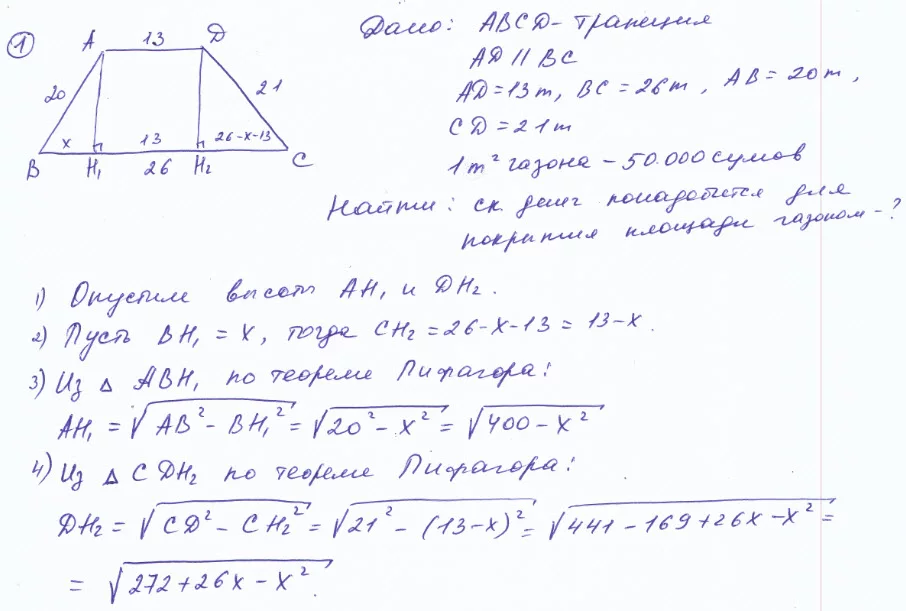 1
A 13 D
20 21
x 13 26-x-13
B H₁ 26 H₂ C
Дано: ABCD - трапеция
AD || BC
AD = 13m, BC = 26m, AB = 20m,
CD = 21m
1m² газона - 50.000 сумов
Найти: ск. денег понадобится для
покрытия площади газоном - ?
1) Опустим высоты AH₁ и DH₂.
2) Пусть BH₁ = x, тогда CH₂ = 26-x-13 = 13-x.
3) Из △ ABH₁ по теореме Пифагора:
AH₁ = √(AB² - BH₁²) = √(20² - x²) = √(400 - x²)
4) Из △ CDH₂ по теореме Пифагора:
DH₂ = √(CD² - CH₂²) = √(21² - (13-x)²) = √(441 - 169 + 26x - x²) =
= √(272 + 26x - x²).